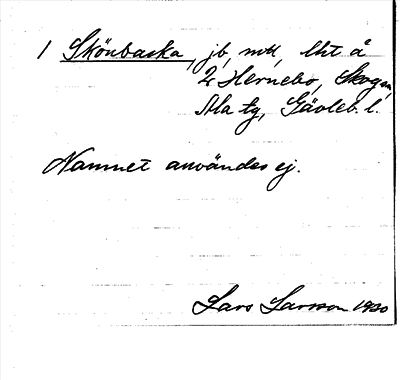 1 Skönbacka, jb, mtl, lht å
2 Hernebo, Skogs,
Ala tg, Gävleb. l.
Namnet användes ej.
Lars Larsson 1920